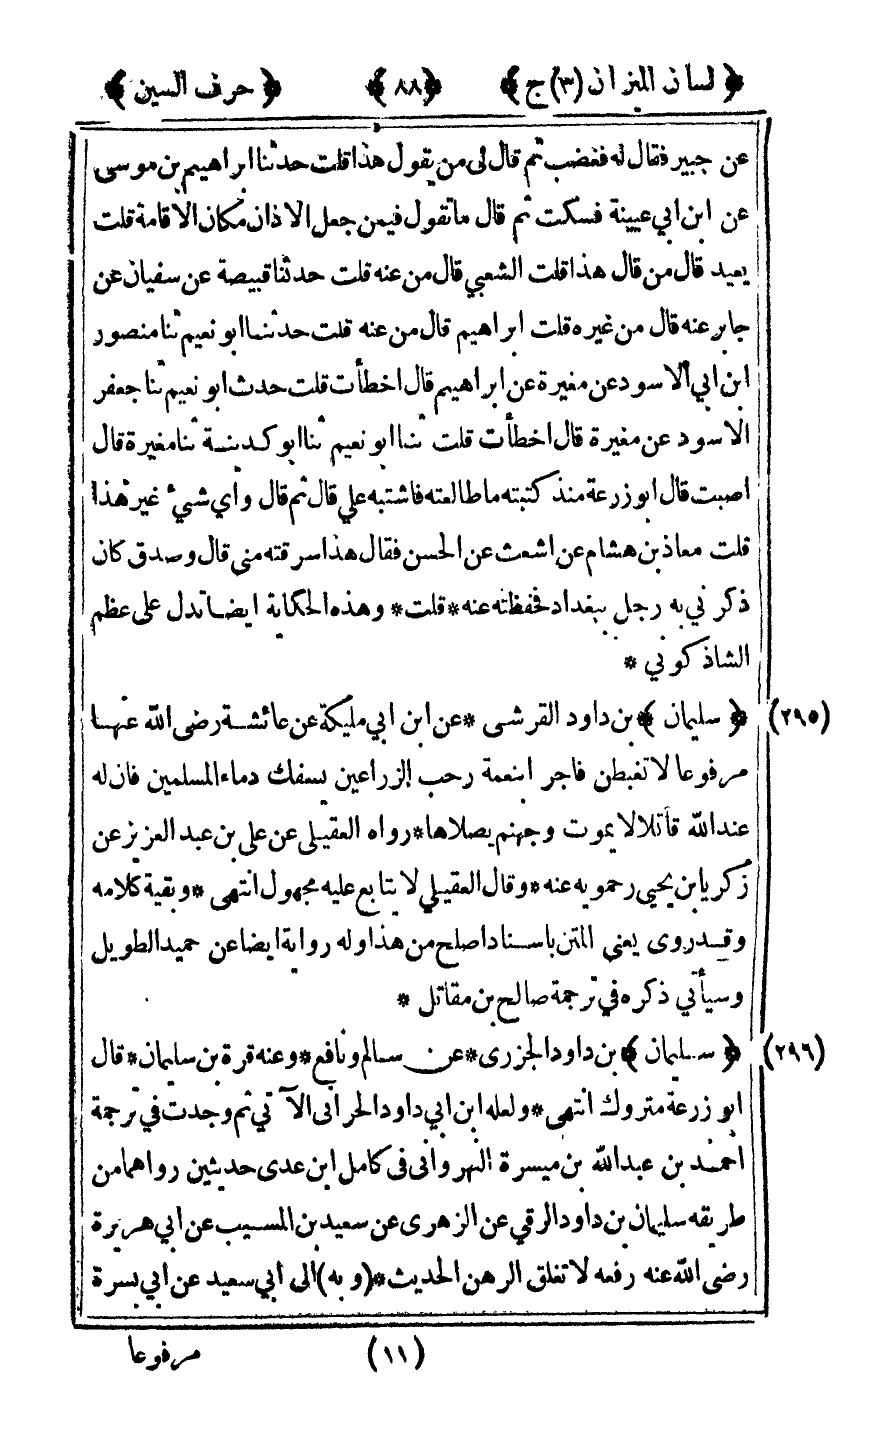 ﴿ لسان الميزان (٣) ج ﴾ ﴿ ٨٨ ﴾ ﴿ حرف السين ﴾
عن جبير فقال له فغضب ثم قال لى من يقول هذا قلت حدثنا ابراهيم بن موسى
عن ابن ابي عيينة فسكت ثم قال ما تقول فيمن جعل الاذان مكان الاقامة قلت
يعيد قال من قال هذا قلت الشعبي قال من عنه قلت حدثنا قبيصة عن سفيان عن
جابر عنه قال من غيره قلت ابراهيم قال من عنه قلت حدثنا ابو نعيم ثنا منصور
ابن ابي الاسود عن مغيرة عن ابراهيم قال اخطأت قلت حدث ابو نعيم ثنا جعفر
الاسود عن مغيرة قال اخطأت قلت ثنا ابو نعيم ثنا ابو كدينة ثنا مغيرة قال
اصبت قال ابو زرعة منذ كتبته ما طالعته فاشتبه علي قال ثم قال واي شيء غير هذا
قلت معاذ بن هشام عن اشعث عن الحسن فقال هذا سرقته مني قال وصدق كان
ذكرني به رجل ببغداد فحفظته عنه * قلت * وهذه الحكاية ايضا تدل على عظم
الشاذكوني *
(٢٩٥) ﴿ سليمان ﴾ بن داود القرشى * عن ابن ابي مليكة عن عائشة رضى الله عنها
مرفوعا لا تغبطن فاجر ابنعمة رحب الزراعين يسفك دماء المسلمين فان له
عند الله قاتلا لا يموت وجهنم يصلاها * رواه العقيلى عن على بن عبد العزيز عن
زكريا بن يحيى رحمويه عنه * وقال العقيلي لا يتابع عليه مجهول انتهى * وبقية كلامه
وقد روى يعني المتن باسناد اصلح من هذا وله رواية ايضا عن حميد الطويل
وسيأتي ذكره في ترجمة صالح بن مقاتل *
(٢٩٦) ﴿ سليمان ﴾ بن داود الجزرى * عن سالم ونافع * وعنه قرة بن سليمان * قال
ابو زرعة متروك انتهى * ولعله ابن ابي داود الحرانى الآتي ثم وجدت في ترجمة
احمد بن عبد الله بن ميسرة النهروانى فى كامل ابن عدى حديثين رواهما من
طريقه سليمان بن داود الرقي عن الزهرى عن سعيد بن المسيب عن ابي هريرة
رضى الله عنه رفعه لا تغلق الرهن الحديث * (وبه) الى ابي سعيد عن ابي بسرة
(١١) مرفوعا